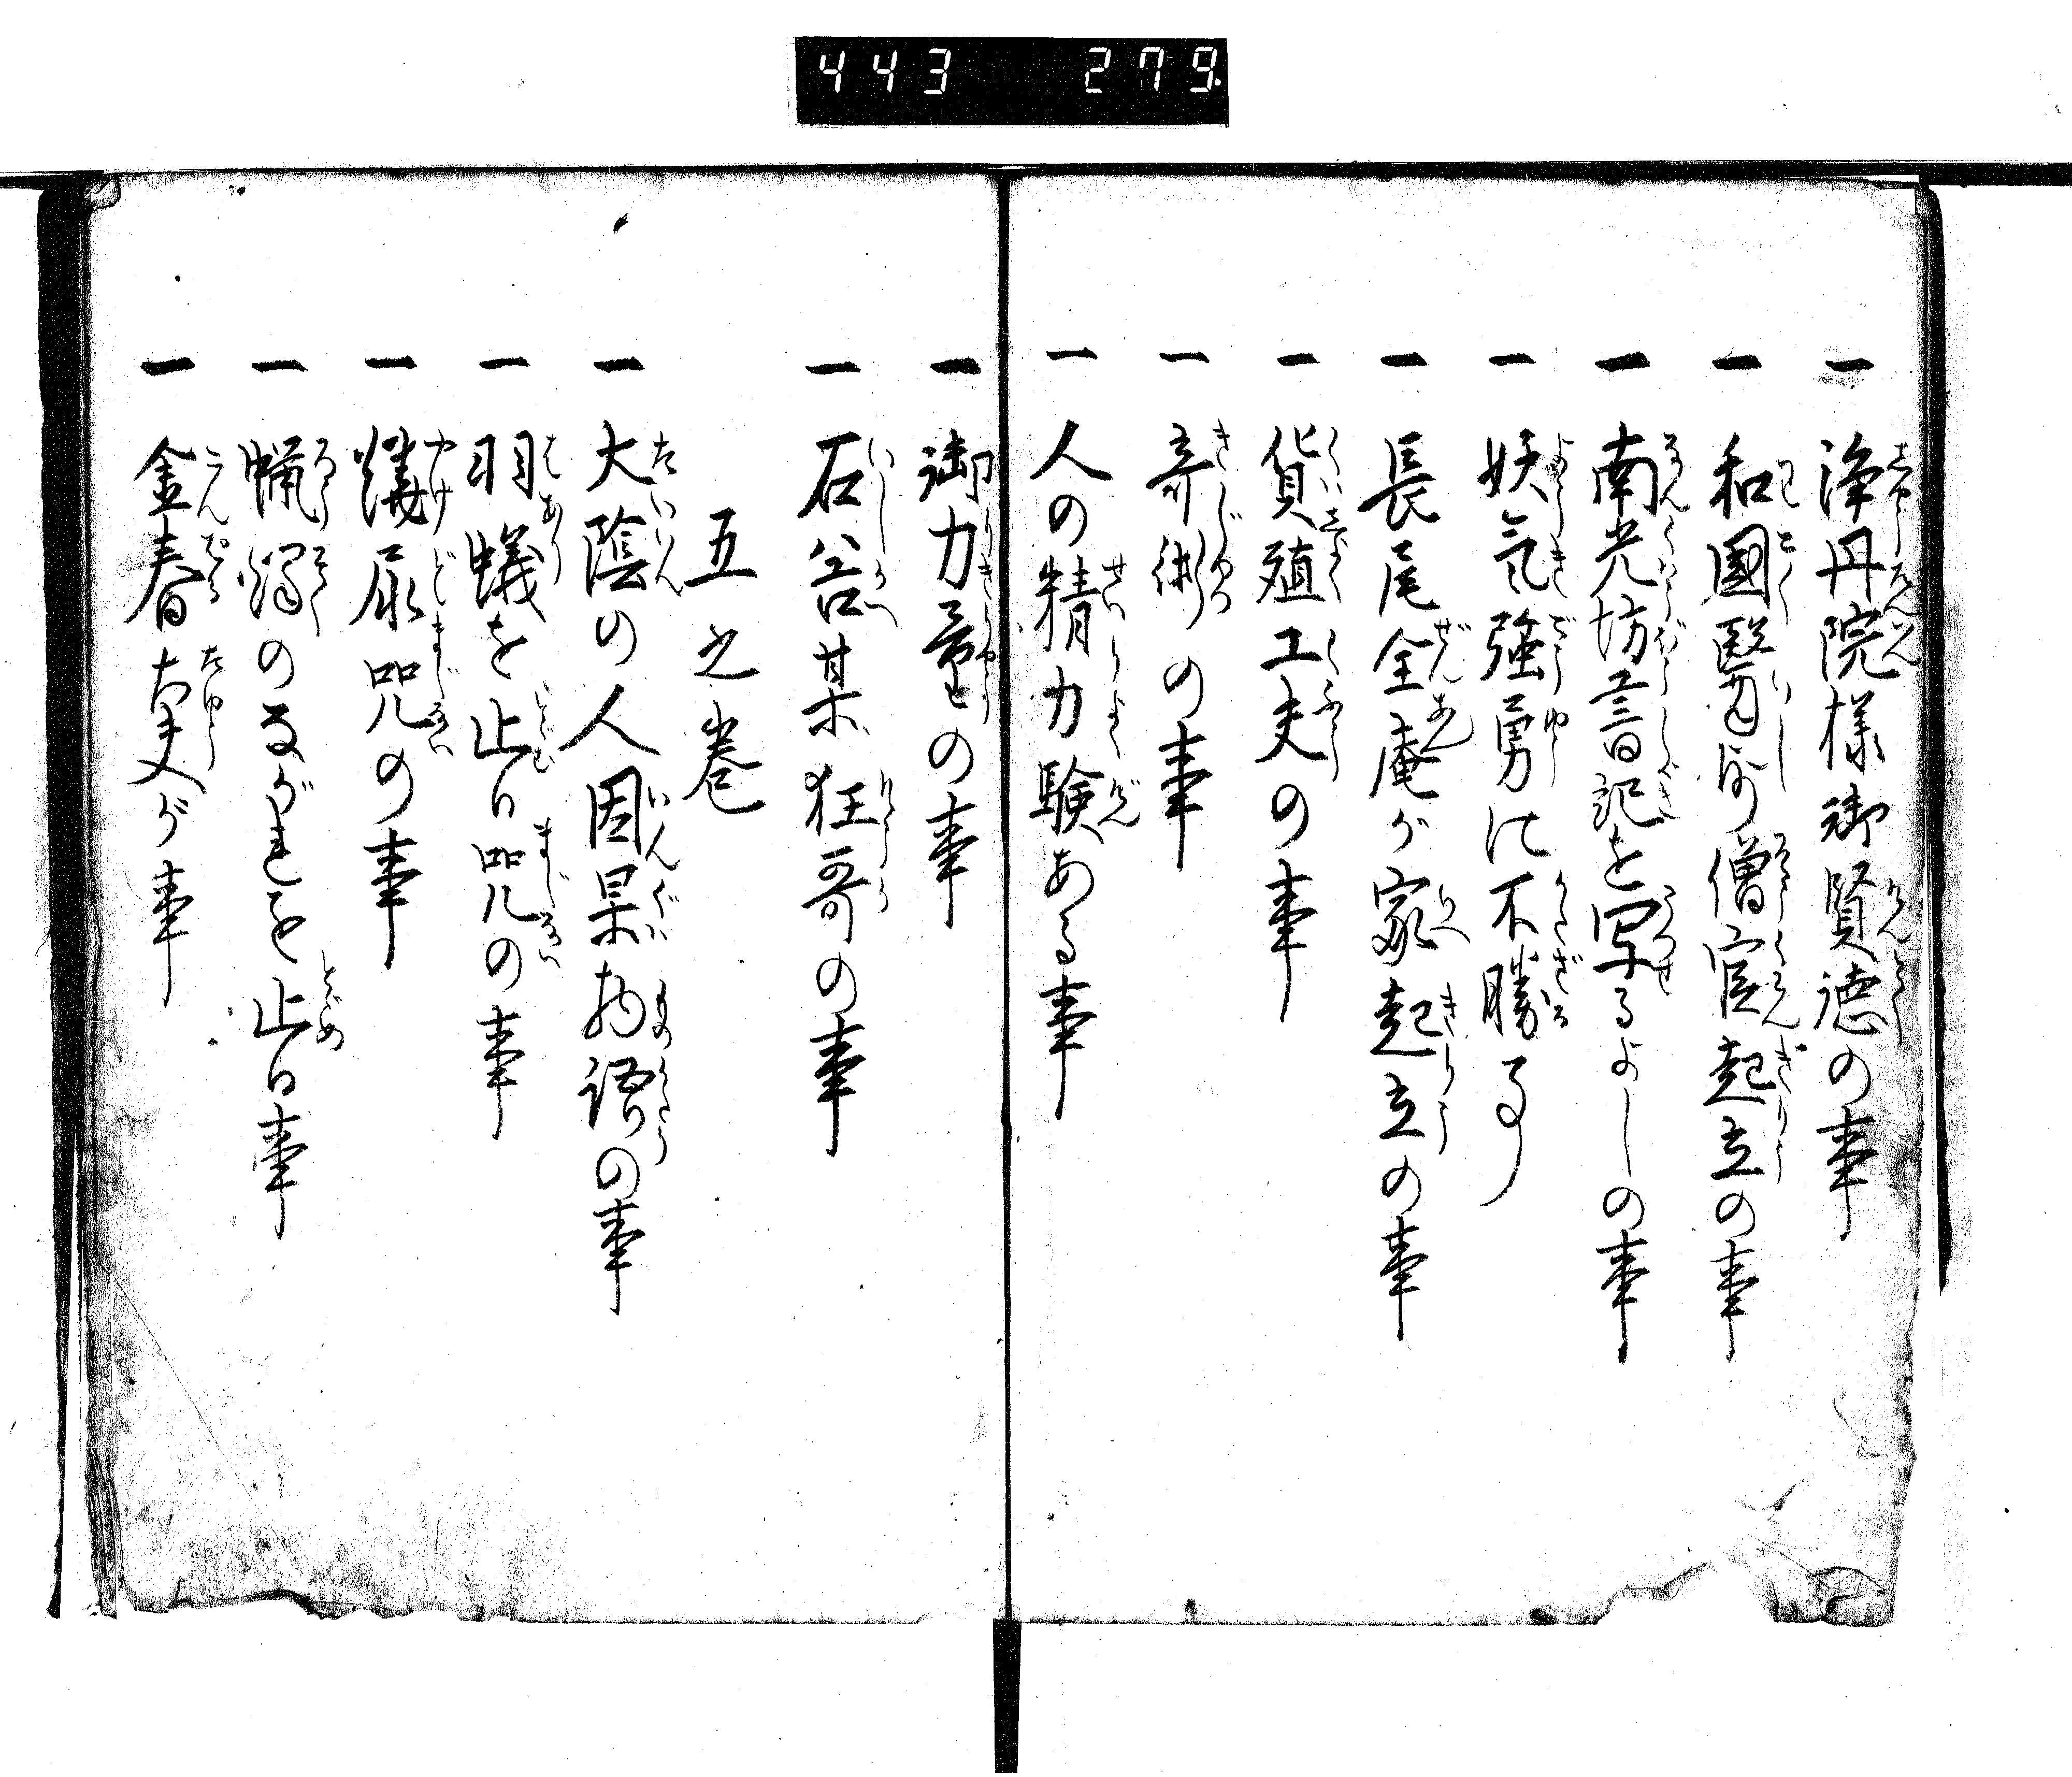 443 279
一 浄円院様御賢徳の事
一 和國医師僧官起立の事
一 南光坊書記を写るよしの事
一 妖気強勇に不勝事
一 長尾全庵が家起立の事
一 貨殖工夫の事
一 奇術の事
一 人の精力験ある事
一 御力量の事
一 石谷某狂哥の事
五之巻
一 大陰の人因果物語の事
一 羽蟻を止る呪の事
一 燒尿呪の事
一 蝋燭のながれを止る事
一 金春太夫が事